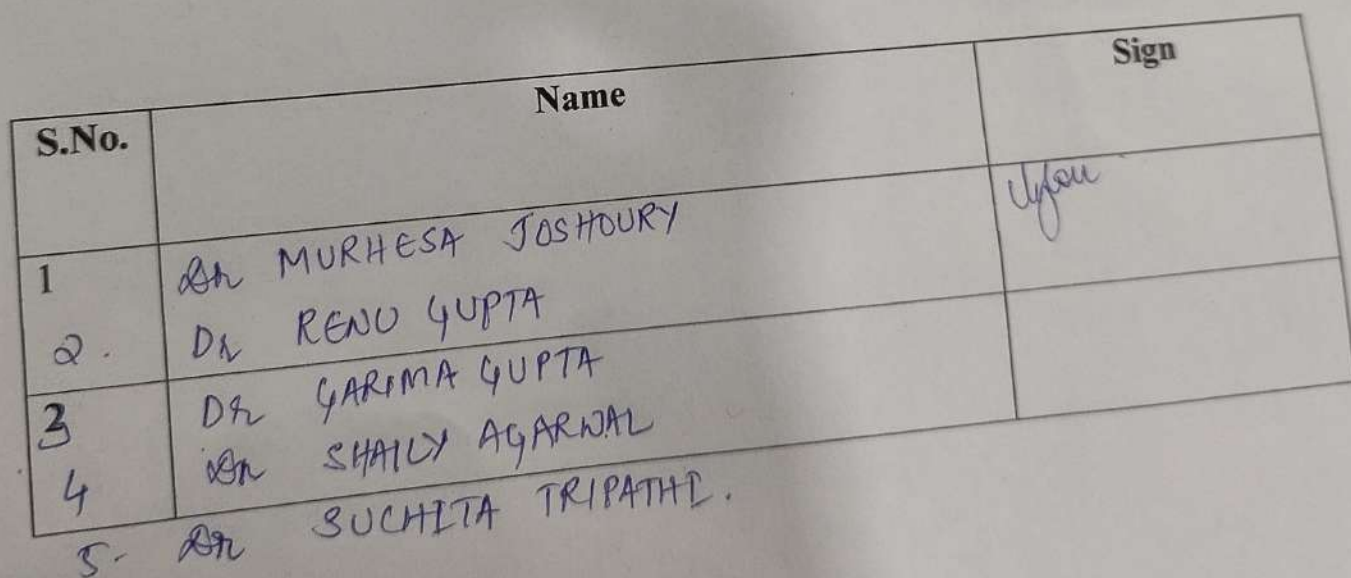 S.No. Name Sign
1 Dr MURHESA JOSHOURY
2. Dr RENU GUPTA
3 Dr GARIMA GUPTA
4 Dr SHAILY AGARWAL
5- Dr SUCHITA TRIPATHI.